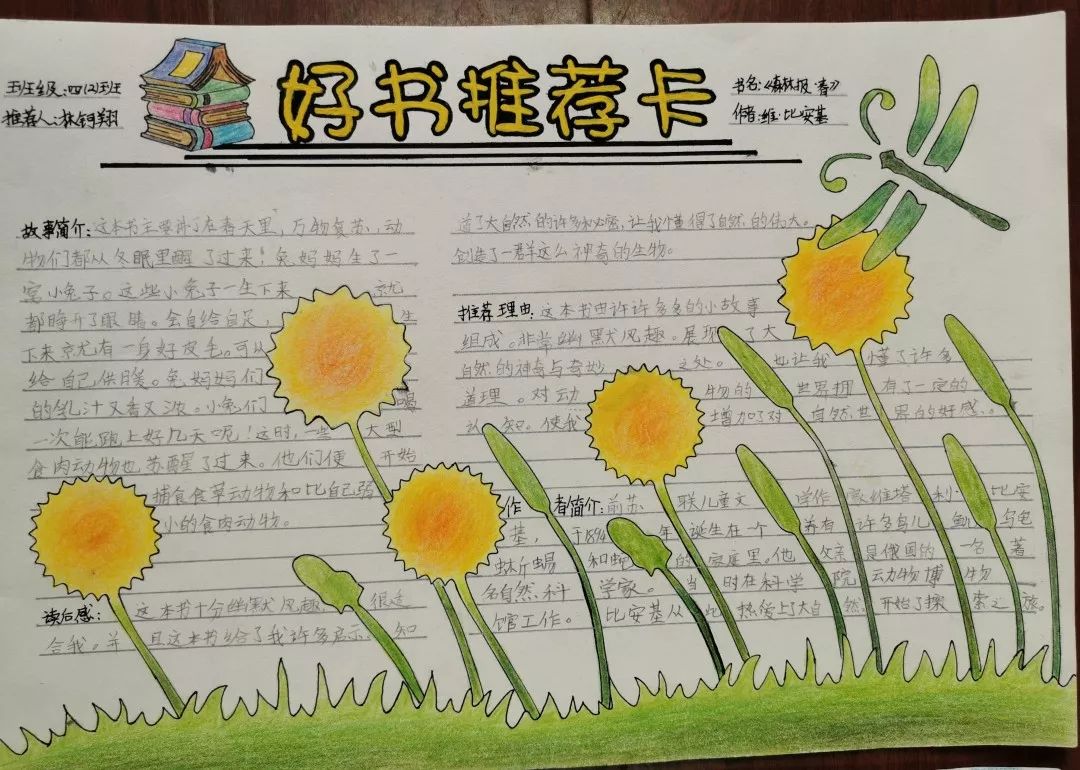 好书推荐卡
班级:四(2)班
推荐人:林钶翔
书名:《森林报·春》
作者:维·比安基
故事简介:这本书主要讲了在春天里,万物复苏,动
物们都从冬眠里醒了过来!兔妈妈生了一
窝小兔子。这些小兔子一生下来 就
都睁开了眼睛。会自给自足, 生
下来就有一身好皮毛。可以
给自己保暖。兔妈妈们
的乳汁又香又浓。小兔们 喝
一次能跑上好几天呢!这时,一些 大型
食肉动物也苏醒了过来。他们便 开始
捕食食草动物和比自己弱
小的食肉动物。
读后感: 这本书十分幽默风趣, 很适
合我。并且这本书给了我许多启示。 知
道了大自然的许多秘密,让我懂得了自然的伟大。
创造了一群这么神奇的生物。
推荐理由:这本书由许许多多的小故事
组成。非常幽默风趣。展现了大
自然的神奇与奇妙 之处。 也让我 懂了许多
道理。对动 物的 世界拥 有了一定的
认知。使我 增加了对 自然世 界的好感。
作者简介:前苏 联儿童文 学作 家维塔 利· 比安
基, 于1894 年 诞生在一个 养有 许多鸟儿、 鱼、 乌龟
蜥蜴 和蛇 的家庭里。他 父亲 是俄国的 一名 著
名自然科 学家。 当 时在科学 院 动物博 物
馆工作。 比安基从 此 热爱上了大自 然, 开始了探 索之 旅。